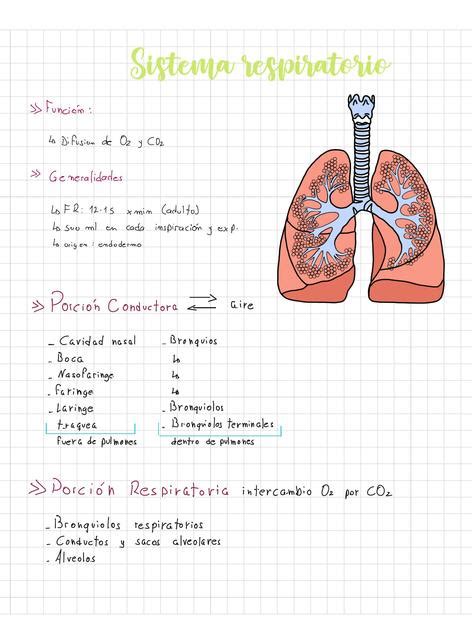 Sistema respiratorio
>> Función:
↳ Difusion de O2 y CO2
>> Generalidades
↳ FR: 12-15 x mim (adulto)
↳ 500 ml en cada inspiración y exp.
↳ origen: endodermo
>> Porción Conductora ⇄ aire
- Cavidad nasal
- Boca
- Nasofaringe
- Faringe
- Laringe
traquea
fuera de pulmones
- Bronquios
↳
↳
↳
- Bronquiolos
- Bronquiolos terminales
dentro de pulmones
>> Porción Respiratoria intercambio O2 por CO2
- Bronquiolos respiratorios
- Conductos y sacos alveolares
- Alveolos